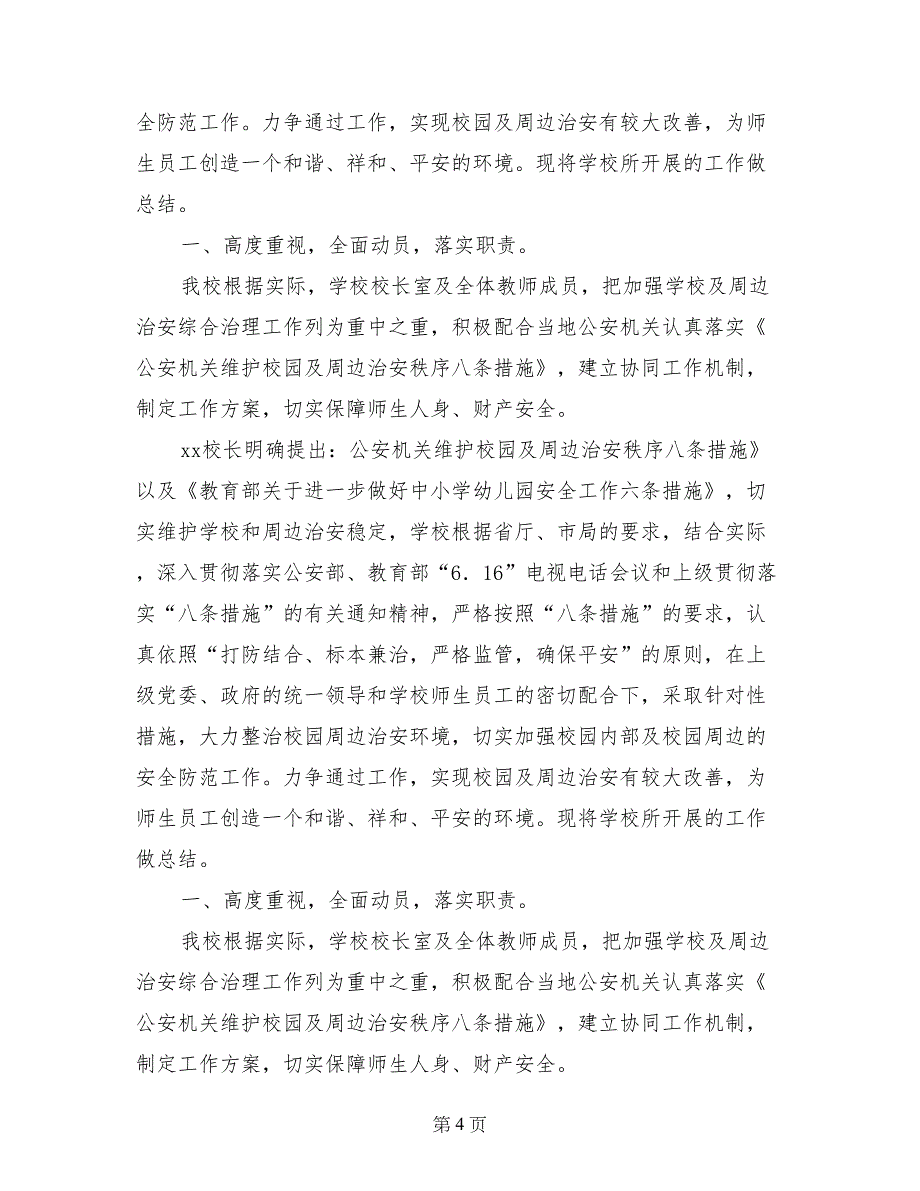 全防范工作。力争通过工作，实现校园及周边治安有较大改善，为师
生员工创造一个和谐、祥和、平安的环境。现将学校所开展的工作做
总结。
一、高度重视，全面动员，落实职责。
我校根据实际，学校校长室及全体教师成员，把加强学校及周边
治安综合治理工作列为重中之重，积极配合当地公安机关认真落实《
公安机关维护校园及周边治安秩序八条措施》，建立协同工作机制，
制定工作方案，切实保障师生人身、财产安全。
xx校长明确提出：公安机关维护校园及周边治安秩序八条措施》
以及《教育部关于进一步做好中小学幼儿园安全工作六条措施》，切
实维护学校和周边治安稳定，学校根据省厅、市局的要求，结合实际
，深入贯彻落实公安部、教育部“6．16”电视电话会议和上级贯彻落
实“八条措施”的有关通知精神，严格按照“八条措施”的要求，认
真依照“打防结合、标本兼治，严格监管，确保平安”的原则，在上
级党委、政府的统一领导和学校师生员工的密切配合下，采取针对性
措施，大力整治校园周边治安环境，切实加强校园内部及校园周边的
安全防范工作。力争通过工作，实现校园及周边治安有较大改善，为
师生员工创造一个和谐、祥和、平安的环境。现将学校所开展的工作
做总结。
一、高度重视，全面动员，落实职责。
我校根据实际，学校校长室及全体教师成员，把加强学校及周边
治安综合治理工作列为重中之重，积极配合当地公安机关认真落实《
公安机关维护校园及周边治安秩序八条措施》，建立协同工作机制，
制定工作方案，切实保障师生人身、财产安全。
第 4 页